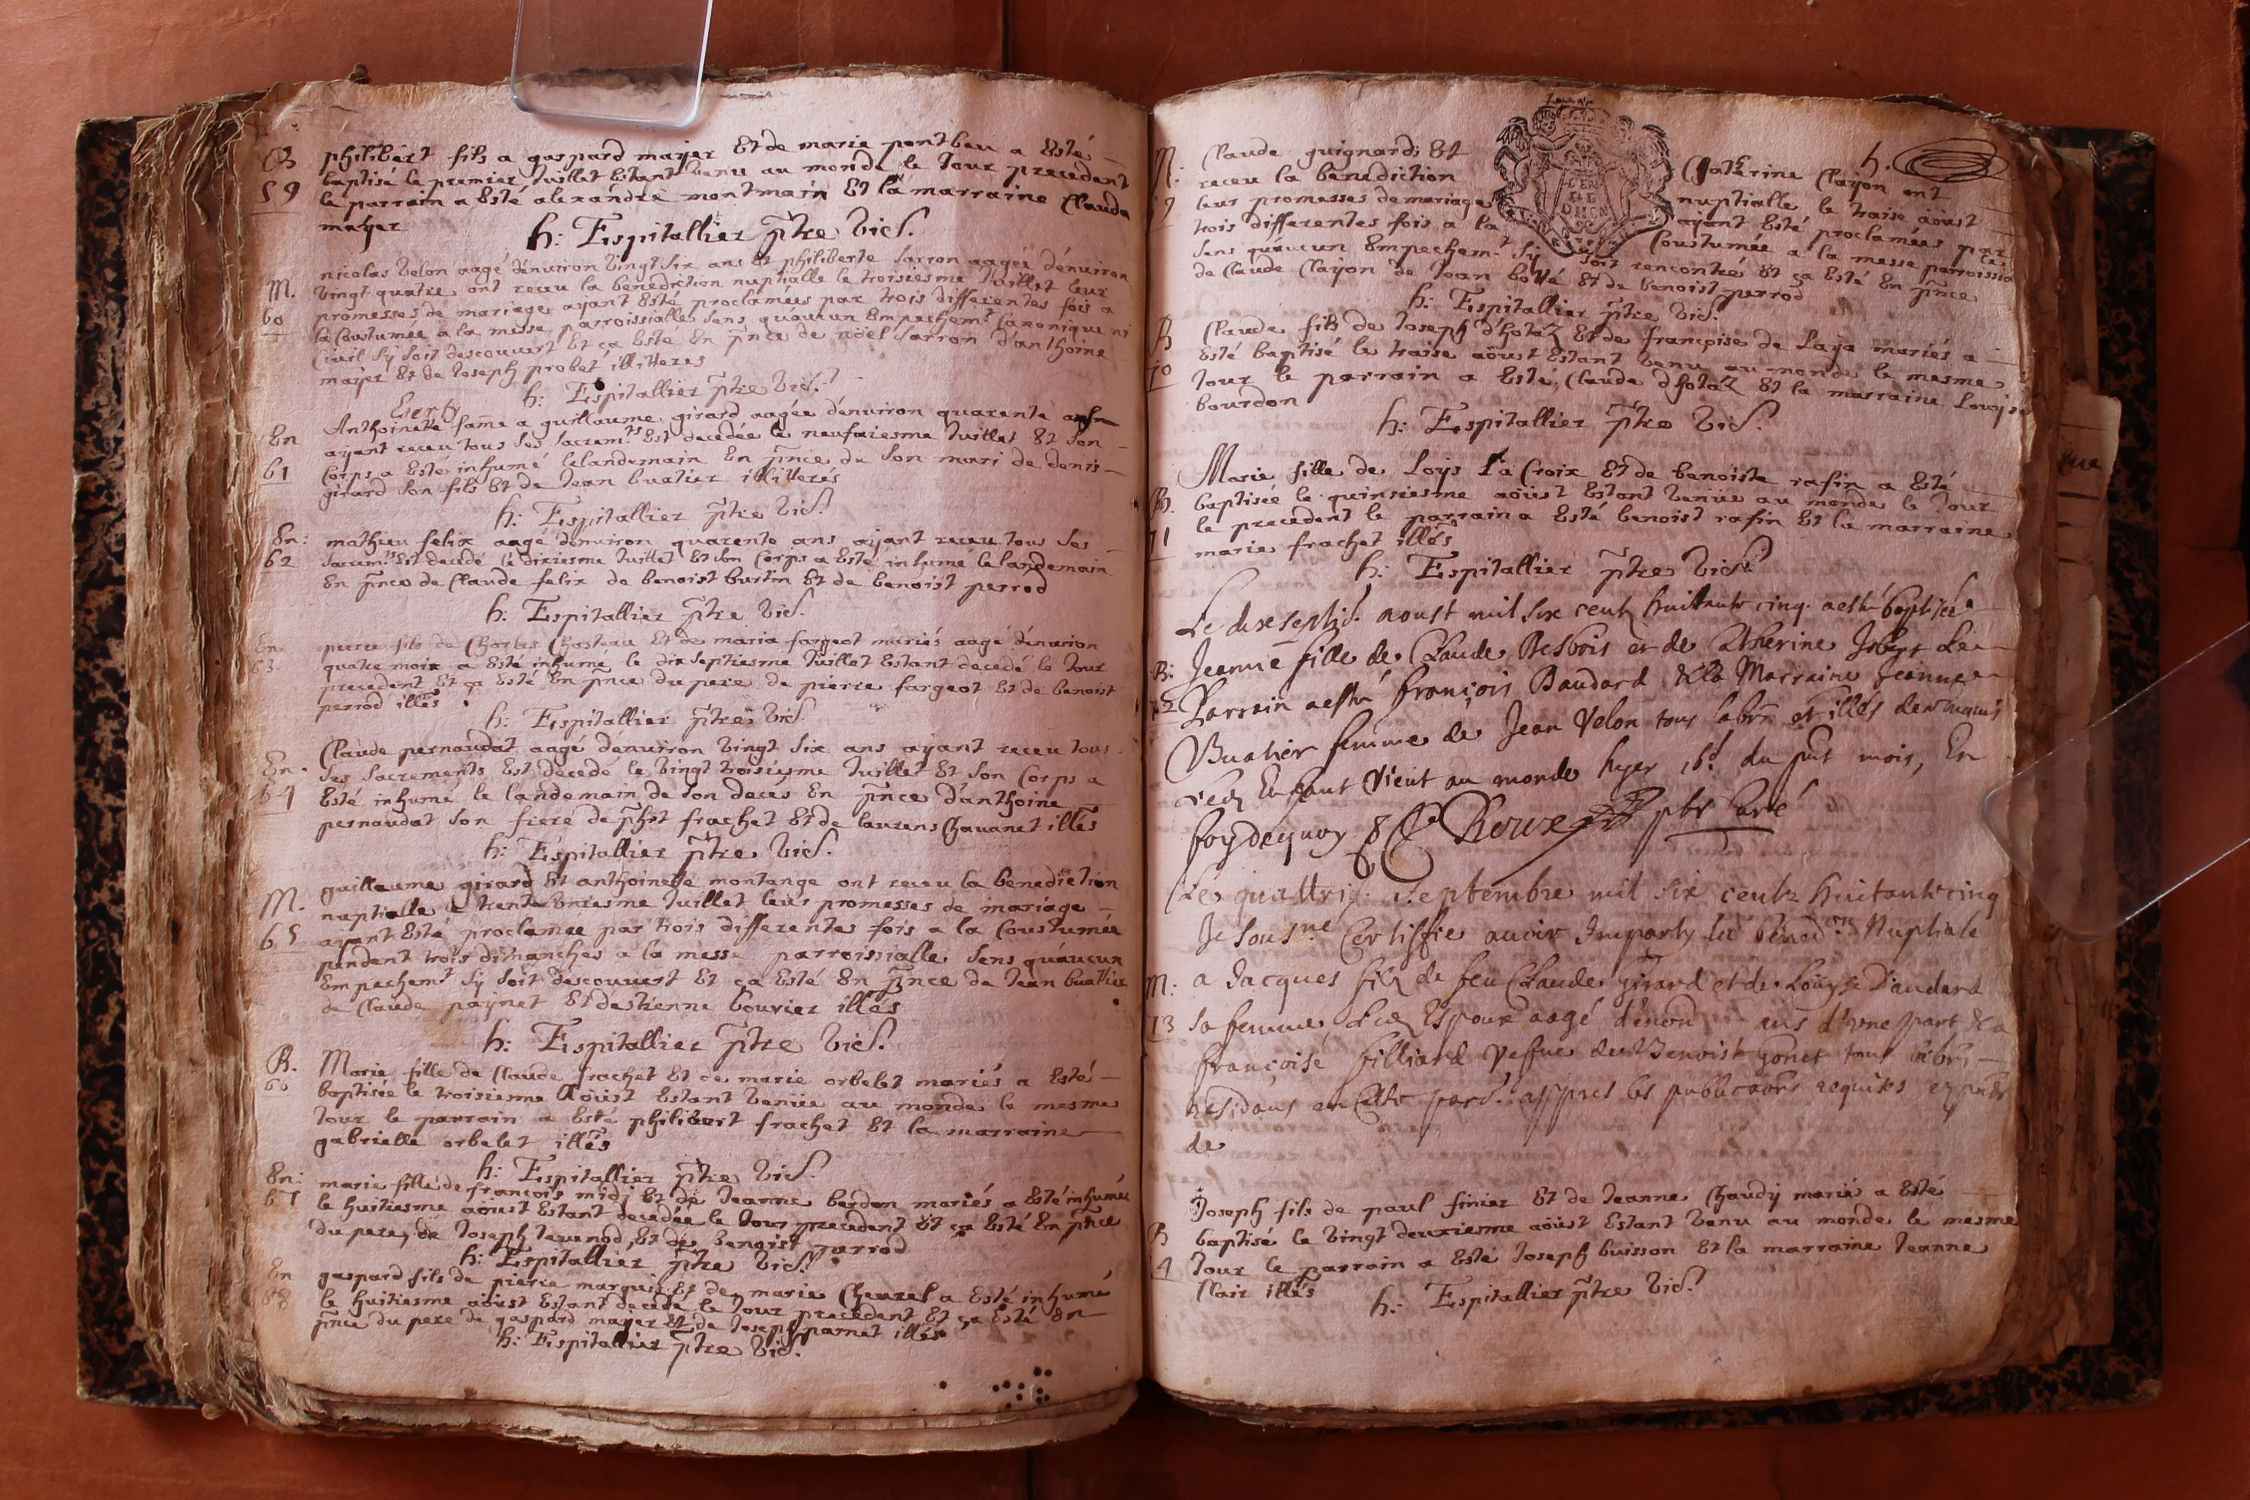 B philibert fils a gaspard mayer Et de marie pontbeu a Esté
59 baptisé le premier Juillet Estant venu au monde le Jour precedent
le parrain a Esté alexandre montmain Et la marraine Clauda
mayer
h: Espitallier p̃tre vic.
nicolas Velon aagé d'enuiron vingt six ans Et philiberte sarron aagée d'enuiron
M. vingt quatre ont receu la benediction nuptialle le troisiesme Juillet leur
60 promesses de mariage ayant Esté proclamées par trois differentes fois a
la Coustumée a la messe parroissialle sens quaucun Empechem.t Canonique ni
Ciuil sy soit descouuert Et ça Este En p̃nce de nöel sarron d'anthoine
mayer Et de Joseph probet illitteres
h: Espitallier p̃tre vic.
Anthoinette fame a guillaume girard aagée d'enuiron quarente ans
En ayant receu tous ses sacrem.ts Est decedée le neufuiesme Juillet Et son
61 Corps a Este inhumé lelandemain En p̃nce de son mari de denis
girard son fils Et de Jean buatier illitterés
h: Espitallier p̃tre vic.
En: mathieu felix aagé d'enuiron quarente ans ayant receu tous ses
62 sacrem.ts Est decedé le dixiesme Juillet Et son Corps a Esté inhumé lelandemain
En p̃nce de Claude felix de benoist burtin Et de benoist perrod
h: Espitallier p̃tre vic.
En pierre fils de Charles Chasteau Et de maria fargeot mariés aagé d'enuiron
63 quatre moix a Esté inhumé le dix septiesme Juillet Estant decedé le Jour
precedent Et ça Esté En p̃nce du pere de pierre fargeot Et de benoist
perrod illés
h: Espitallier p̃tre vic.
Claude pernaudat aagé d'enuiron vingt six ans ayant receu tous
En. ses sacrements Est decedé le vingt troisiesme Juillet Et son Corps a
64 Esté inhumé le landemain de son deces En p̃nce d'anthoine
pernaudat son frere de p̃hit frachet Et de laurens Chauanet illés
h: Espitallier p̃tre vic.
M. guillaume girard Et anthoinette montange ont receu la benediction
nuptialle le trente vniesme Juillet leurs promesses de mariage
65 ayant Esté proclamée par trois differentes fois a la Coustumée
pendent trois dimanches a la messe parroissialle sens quaucun
Empechem.t sy soit descouuert Et ça Esté En p̃nce de Jean buattier
de Claude paynet Et destienne bouvier illés
h: Espitallier p̃tre vic.
B. Marie fille de Claude frachet Et de marie orbelet mariés a Esté
66 baptisée le troisiesme Aoüst Estant venüe au monde le mesme
Jour le parrain a Esté philibert frachet Et la marraine
gabrielle orbelet illés
h: Espitallier p̃tre vic.
En: marie fille de françois midj Et de Jeanne berdon mariés a Esté inhumée
67 le huitiesme aoust Estant decedée le Jour precedent Et ça Esté En p̃nce
du pere, de Joseph Jeuenod, Et de benoist perrod
h: Espitallier p̃tre vic.
En gaspard fils de pierre marquis Et de marie Cheurel a Esté inhumé
68 le huitiesme aöust Estant decedé le Jour precedent Et ça Esté En
p̃nce du pere de gaspard mayer Et de Joseph parnet illés
h: Espitallier p̃tre vic.
h.
M. Claude guignard Et Catherine Clayon ont
receu la benediction nuptialle le traise aoust
leur promesses de mariage ayant Esté proclamées par
trois differentes fois a la Coustumée a la messe parroissia
sens quaucun Empechem.t sy soit rencontré Et ça Esté En p̃nce
de Claude Clayon de Jean botté Et de benoist perrod
h: Espitallier p̃tre vic.
B Claude fils de Joseph d'hotaz Et de françoise de Laya mariés a
70 Esté baptisé le traise aoüst Estant venu au monde le mesme
Jour le parrain a Esté, Claude d'hotaz Et la marraine Louise
bourdon
h: Espitallier p̃tre vic.
Marie fille de Loys La Croix Et de benoiste rafin a Esté
B. baptisée le quinsiesme aoüst Estant venüe au monde le Jour
le precedent le parrain a Esté benoist rafin Et la marraine
71 marie frachet illés
h: Espitallier p̃tre vic.
Le dix septie. aoust mil six cents huitante cinq a esté baptisée
B: Jeanne fille de Claude Desbois et de Catherine Le
72 Parrain a esté françois Baudard & la Marraine Jeanne
Buatier femme de Jean Velon tous et illés
Enfant Vient au monde hyer 16.e du pnt mois, En
foy de quoy ptr Curé
Le quattrie. Septembre mil six cents huitante cinq
Je sous.né Certiffie auoir Imparty la bened.on Nuptiale
M: a Jacques filz de feu Claude girard et de Louyse Daudard
73 sa femme Espoux aagé d'enon ans d'vne part & a
françoise filliard veffue de Benoist gonet tous
residans en Cette par. appres les publicaons requises
de
Joseph fils de paul finier Et de Jeanne Chaudy mariés a Esté
B baptisé le vingt deuxiesme aöüst Estant venu au monde le mesme
4 Jour le parrain a Esté Joseph buisson Et la marraine Jeanne
Clair illés
h: Espitallier p̃tre vic.